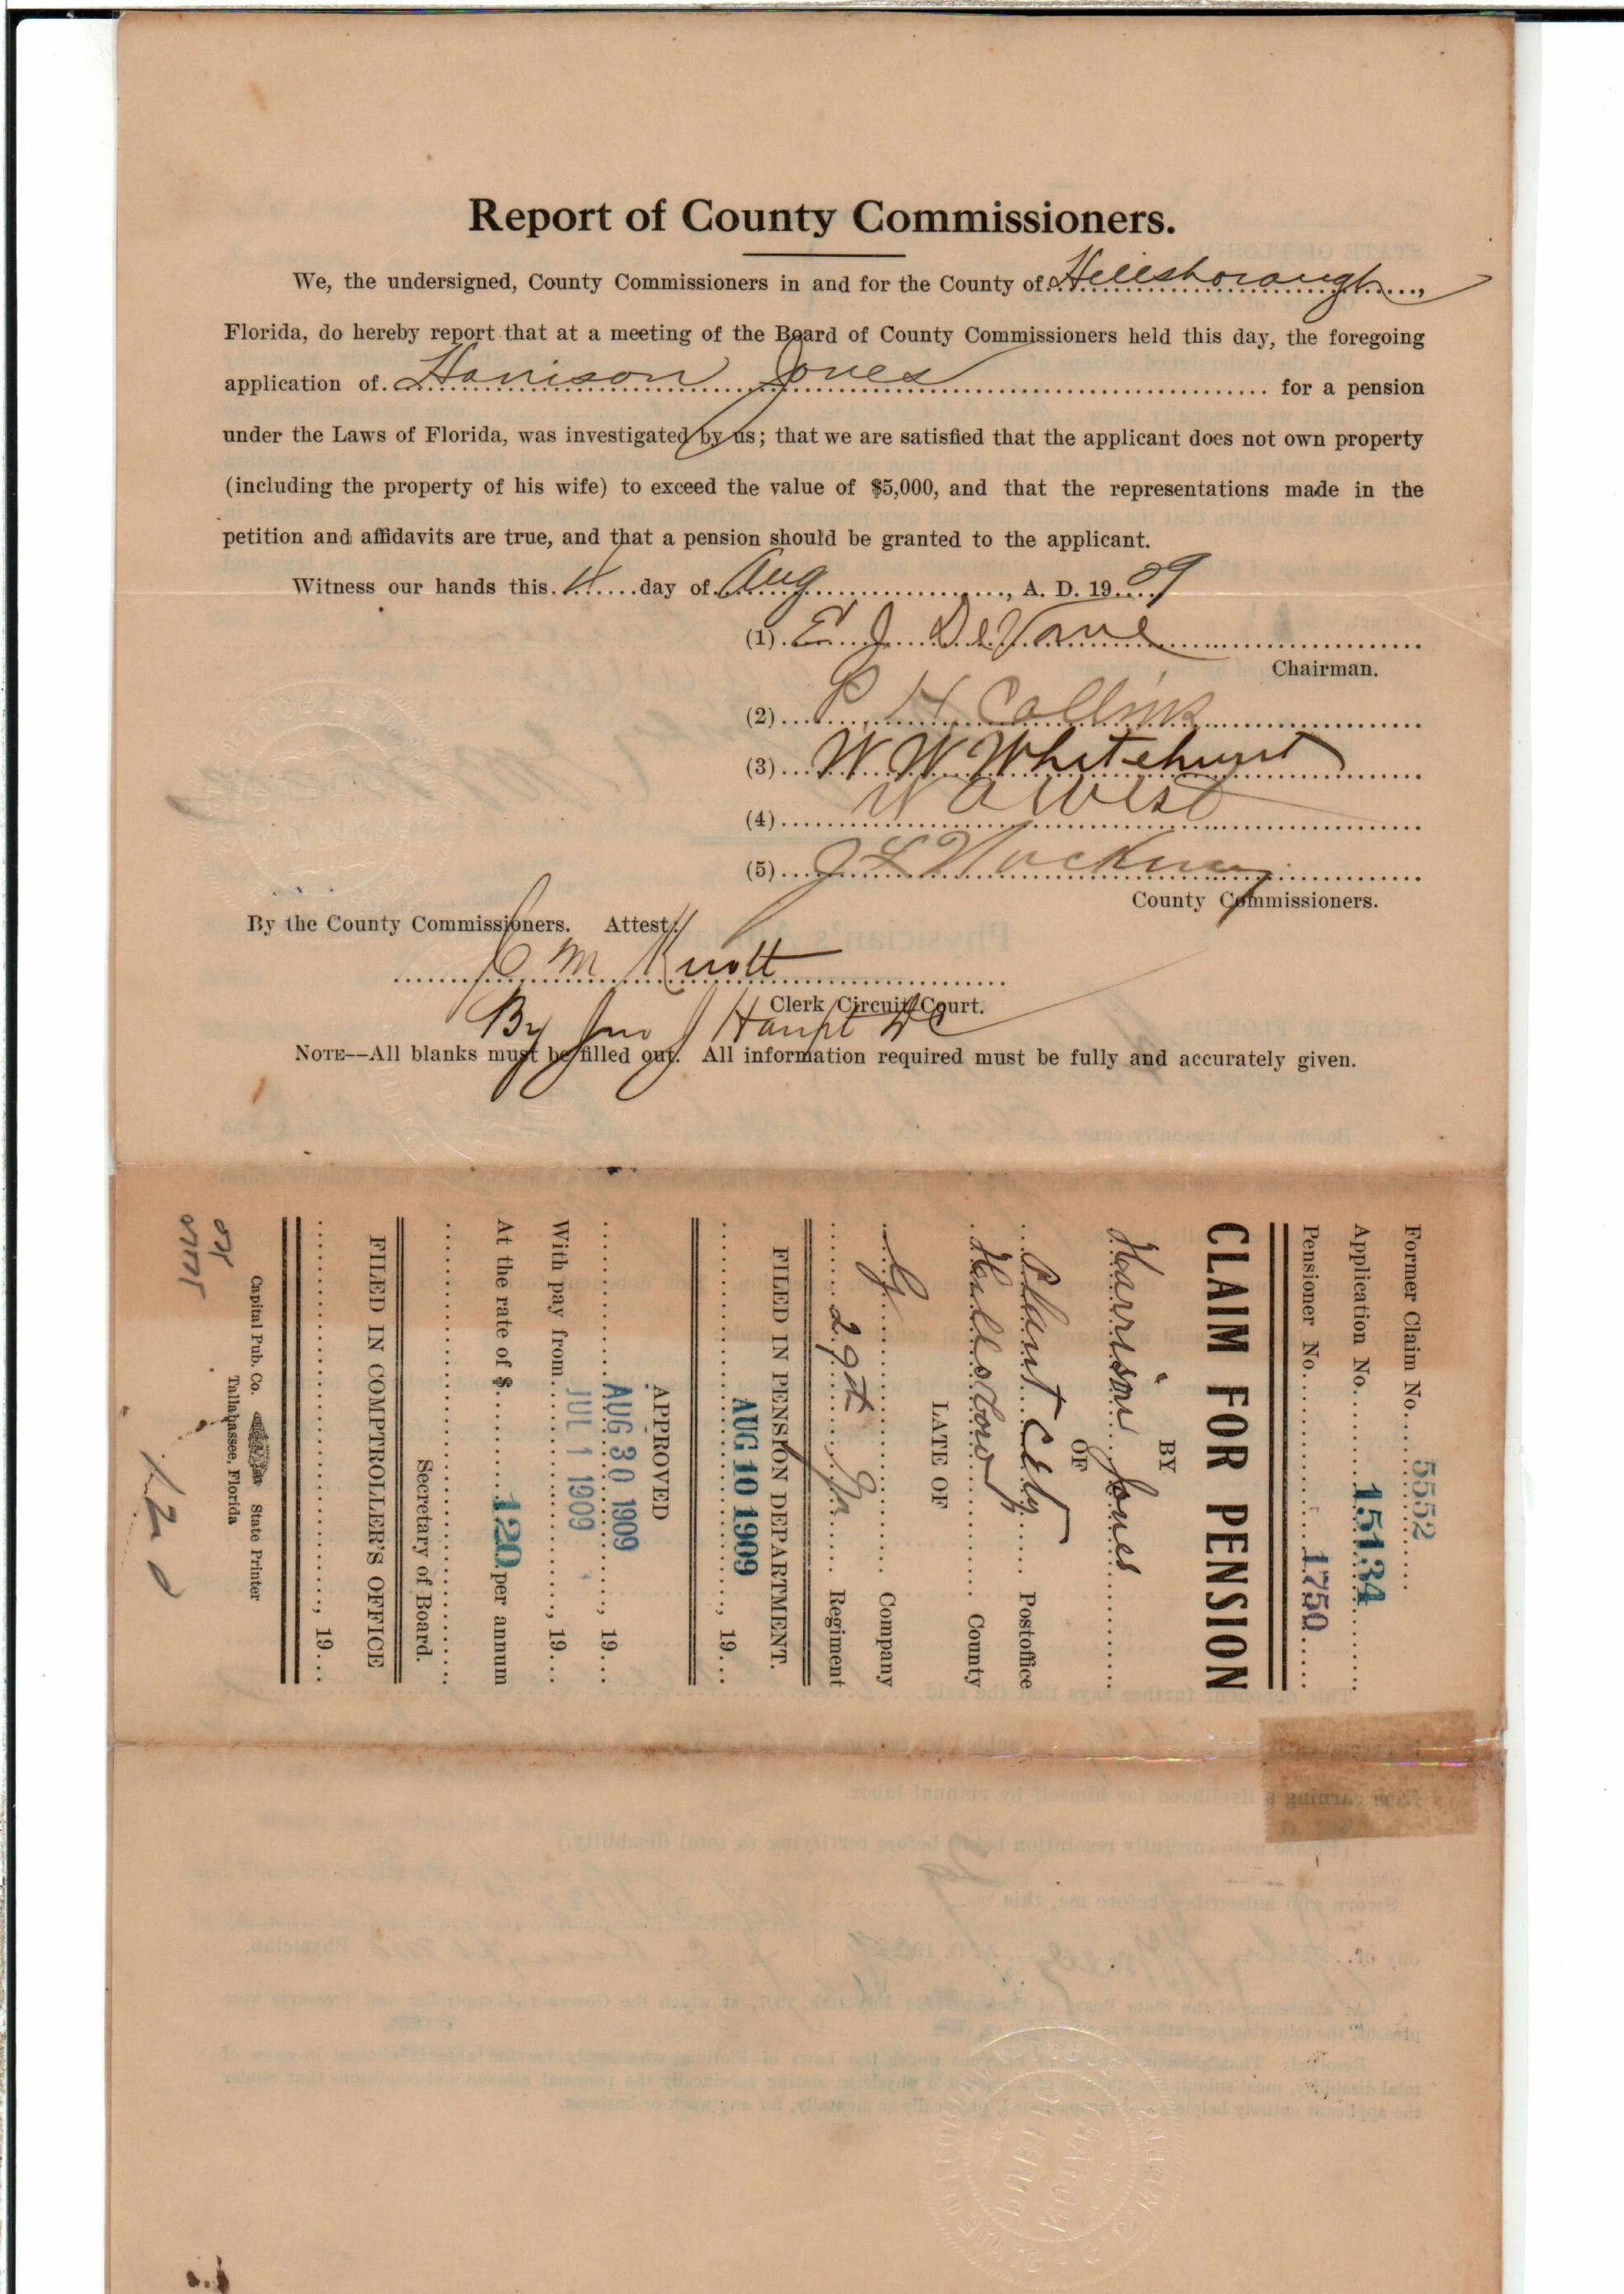 Report of County Commissioners.
We, the undersigned, County Commissioners in and for the County of Hillsborough,
Florida, do hereby report that at a meeting of the Board of County Commissioners held this day, the foregoing
application of Harrison Jones for a pension
under the Laws of Florida, was investigated by us; that we are satisfied that the applicant does not own property
(including the property of his wife) to exceed the value of $5,000, and that the representations made in the
petition and affidavits are true, and that a pension should be granted to the applicant.
Witness our hands this day of Aug, A. D. 1909
(1) E J DeVane
Chairman.
(2) P H Collins
(3) W W Whitehurst
(4) W A West
(5) J L
County Commissioners.
By the County Commissioners. Attest:
M Knott
Clerk Circuit Court.
By Jno J Haupt DC
NOTE--All blanks must be filled out. All information required must be fully and accurately given.
Former Claim No. 5552
Application No. 15134
Pensioner No. 1750
CLAIM FOR PENSION
BY
Harrison Jones
OF
Plant City Postoffice
Hillsboro County
LATE OF
G Company
29th Ga Regiment
FILED IN PENSION DEPARTMENT.
AUG 10 1909, 19
APPROVED
AUG 30 1909, 19
With pay from JUL 1 1909, 19
At the rate of $ 120 per annum
Secretary of Board.
FILED IN COMPTROLLER'S OFFICE
, 19
Capital Pub. Co. State Printer
Tallahassee, Florida